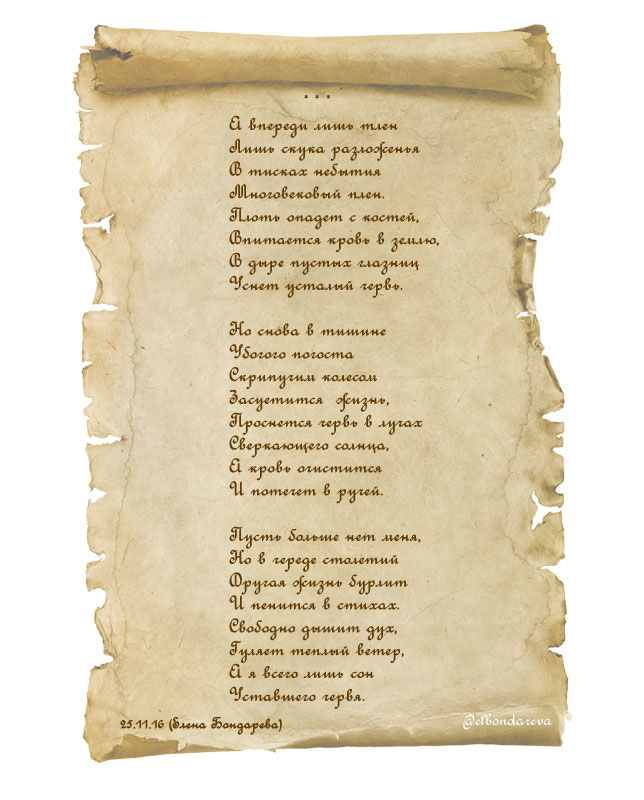 ...
А впереди лишь тлен
Лишь скука разложенья
В тисках небытия
Многовековый плен.
Плоть опадет с костей,
Впитается кровь в землю,
В дыре пустых глазниц
Уснет усталый червь.
Но снова в тишине
Убогого погоста
Скрипучим колесом
Засуетится жизнь,
Проснется червь в лучах
Сверкающего солнца,
А кровь очистится
И потечет в ручей.
Пусть больше нет меня,
Но в череде столетий
Другая жизнь бурлит
И пенится в стихах.
Свободно дышит дух,
Гуляет теплый ветер,
А я всего лишь сон
Уставшего червя.
25.11.16 (Елена Бондарева)
@elbondareva